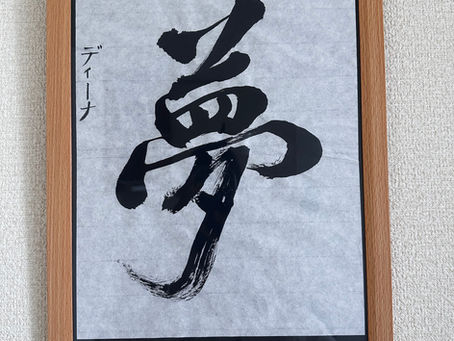 夢
ディーナ